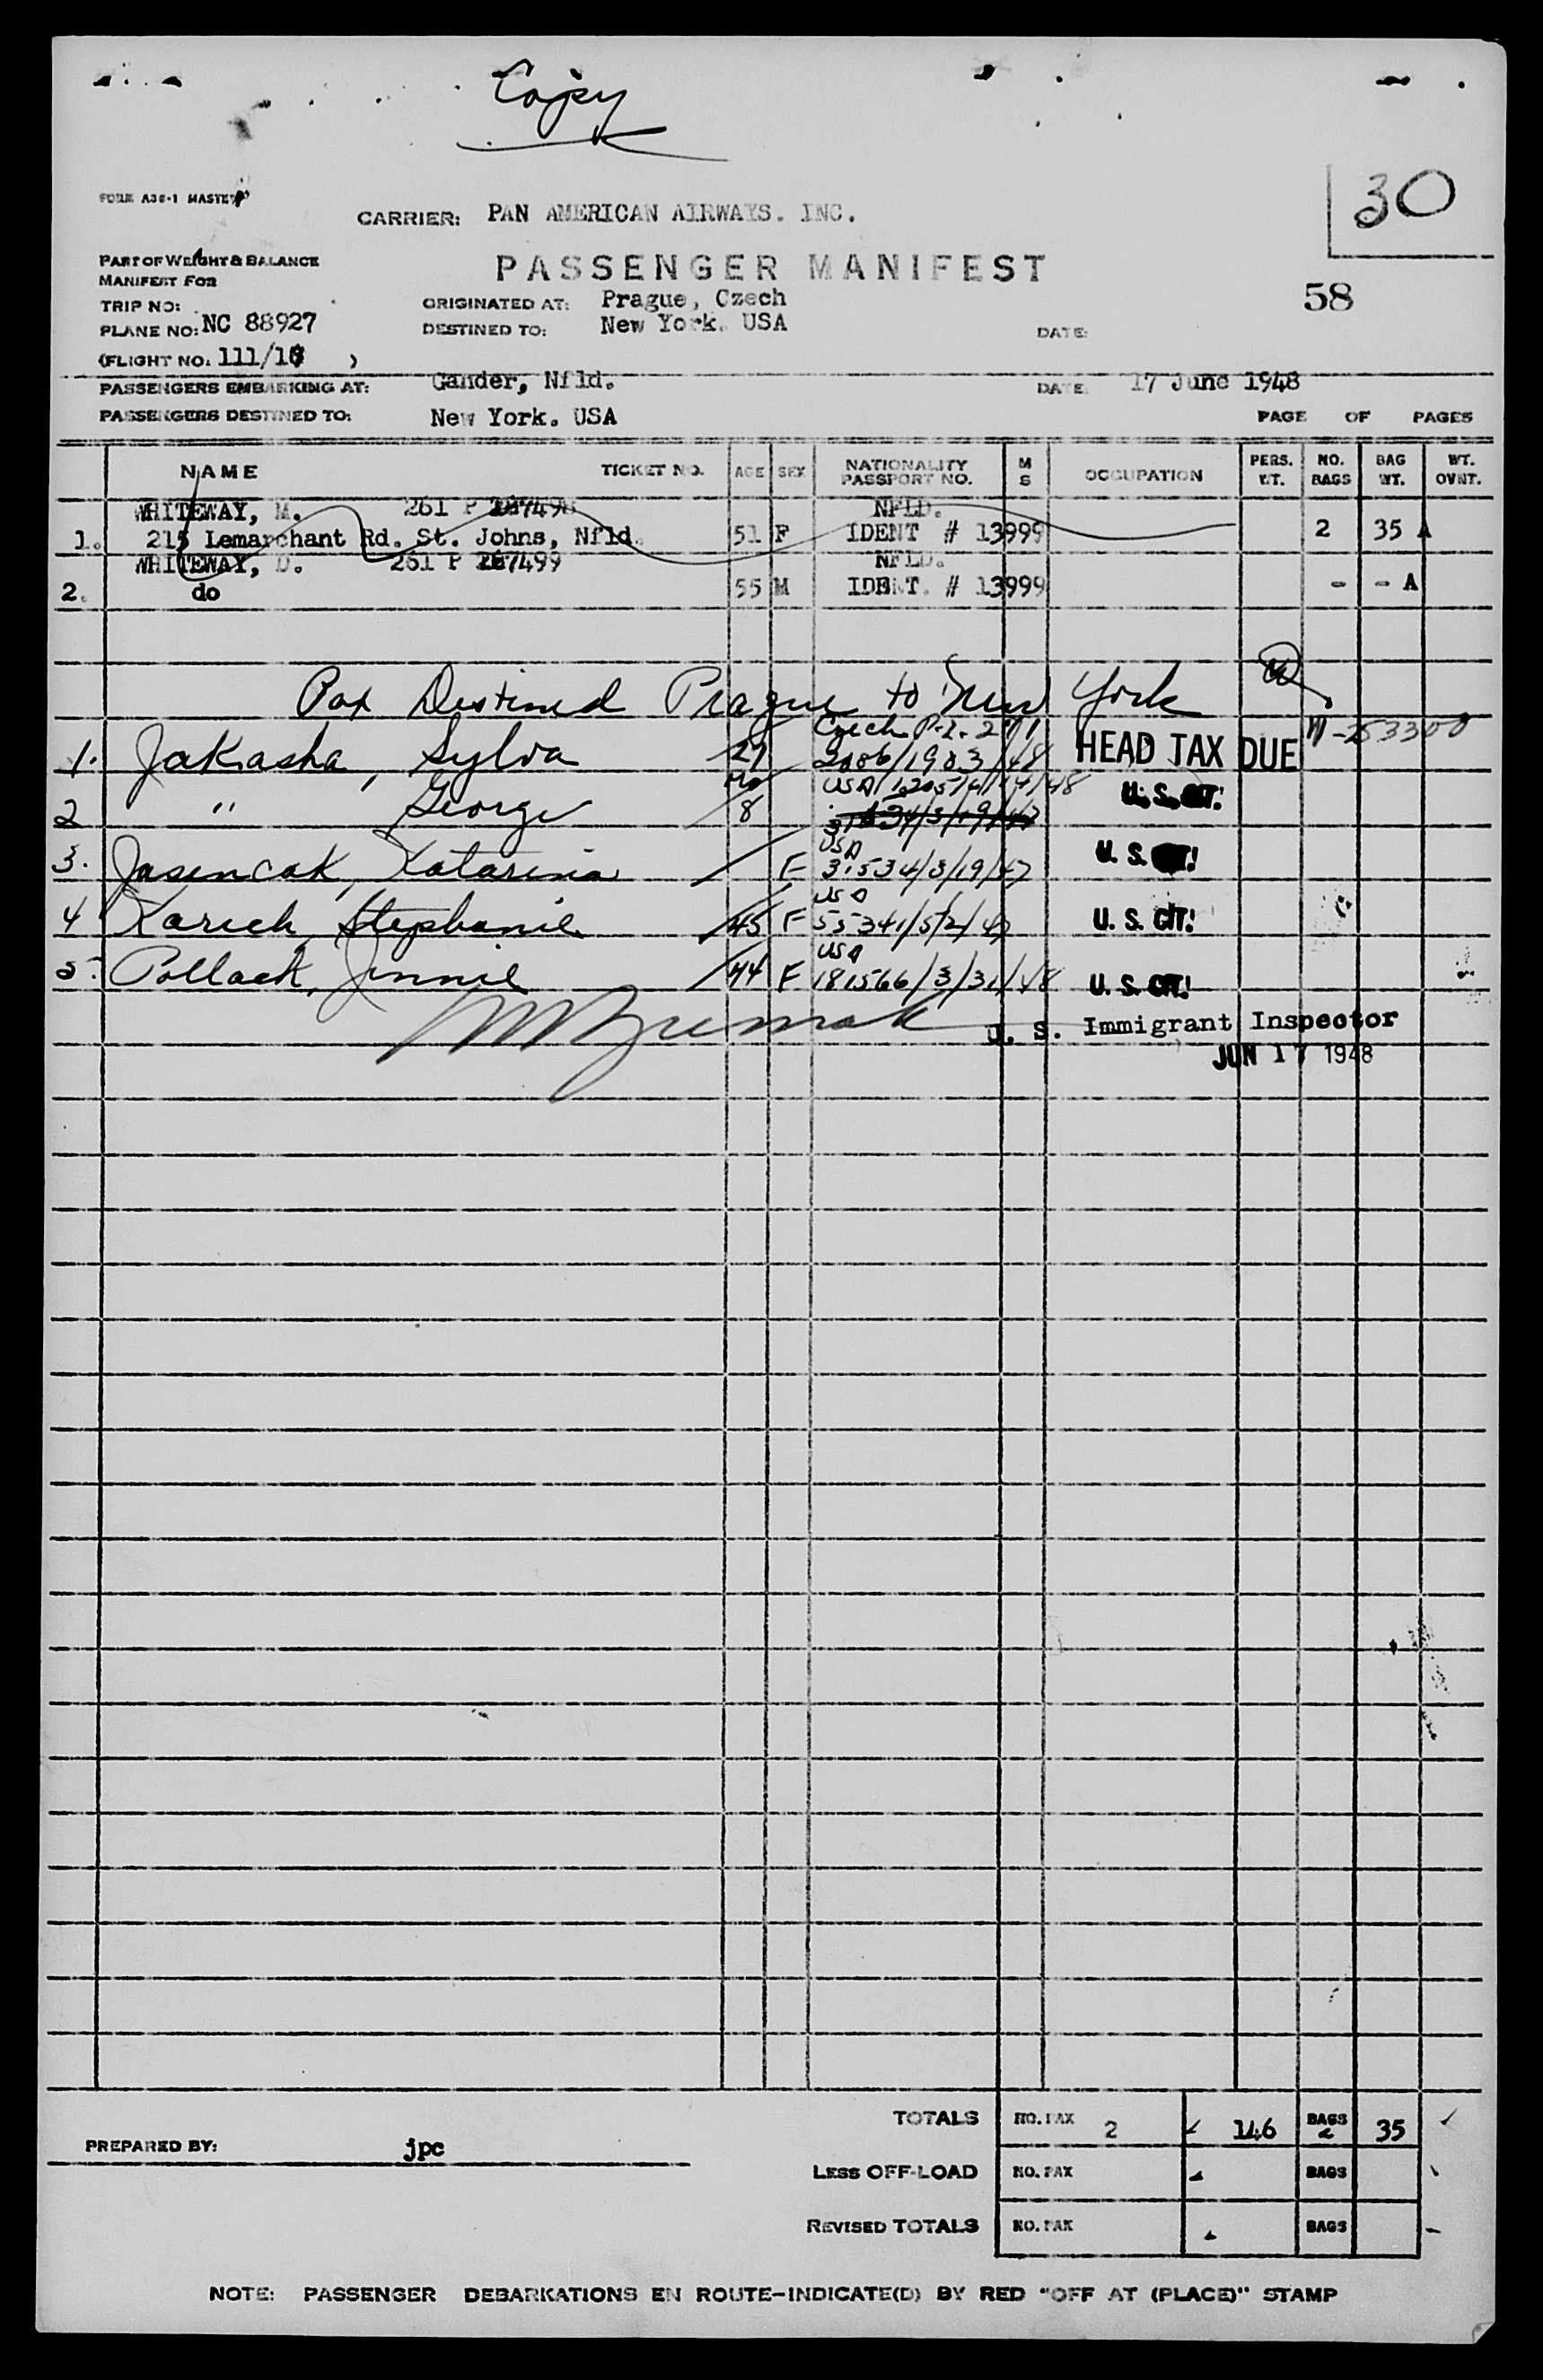 Copy
30
FORM A36-1 MASTER
CARRIER: PAN AMERICAN AIRWAYS. INC.
PART OF WEIGHT & BALANCE
MANIFEST FOR
PASSENGER MANIFEST
58
TRIP NO:
ORIGINATED AT: Prague, Czech
PLANE NO: NC 88927
DESTINED TO: New York. USA
DATE:
(FLIGHT NO: 111/16 )
PASSENGERS EMBARKING AT: Gander, Nfld.
DATE. 17 June 1948
PASSENGERS DESTINED TO: New York. USA
PAGE OF PAGES
NAME TICKET NO. AGE SEX NATIONALITY PASSPORT NO. M S OCCUPATION PERS. WT. NO. BAGS BAG WT. WT. OVNT.
WHITEWAY, M. 261 P 267498 NFLD.
1. 215 Lemarchant Rd. St. Johns, Nfld. 51 F IDENT # 13999 2 35 A
WHITEWAY, D. 261 P 267499 NFLD.
2. do 55 M IDENT. # 13999 - - A
Pax Destined Prague to New York
Czech P-2-271
1. Jakasha, Sylva 27 2086/1983/48 HEAD TAX DUE
mo USA
2 " George 8 U. S. CIT!
USA
3. Jasencak, Katarina F 31534/3/19/47 U. S. CIT!
USA
4 Karich, Stephanie 45 F 55341/5/2/47 U. S. CIT!
USA
5. Pollack, Jennie 44 F 181566/3/31/48 U. S. CIT!
U. S. Immigrant Inspector
JUN 17 1948
TOTALS NO. PAX 2 146 BAGS 2 35
PREPARED BY: jpc
LESS OFF-LOAD NO. PAX BAGS
REVISED TOTALS NO. PAX BAGS
NOTE: PASSENGER DEBARKATIONS EN ROUTE-INDICATE(D) BY RED "OFF AT (PLACE)" STAMP